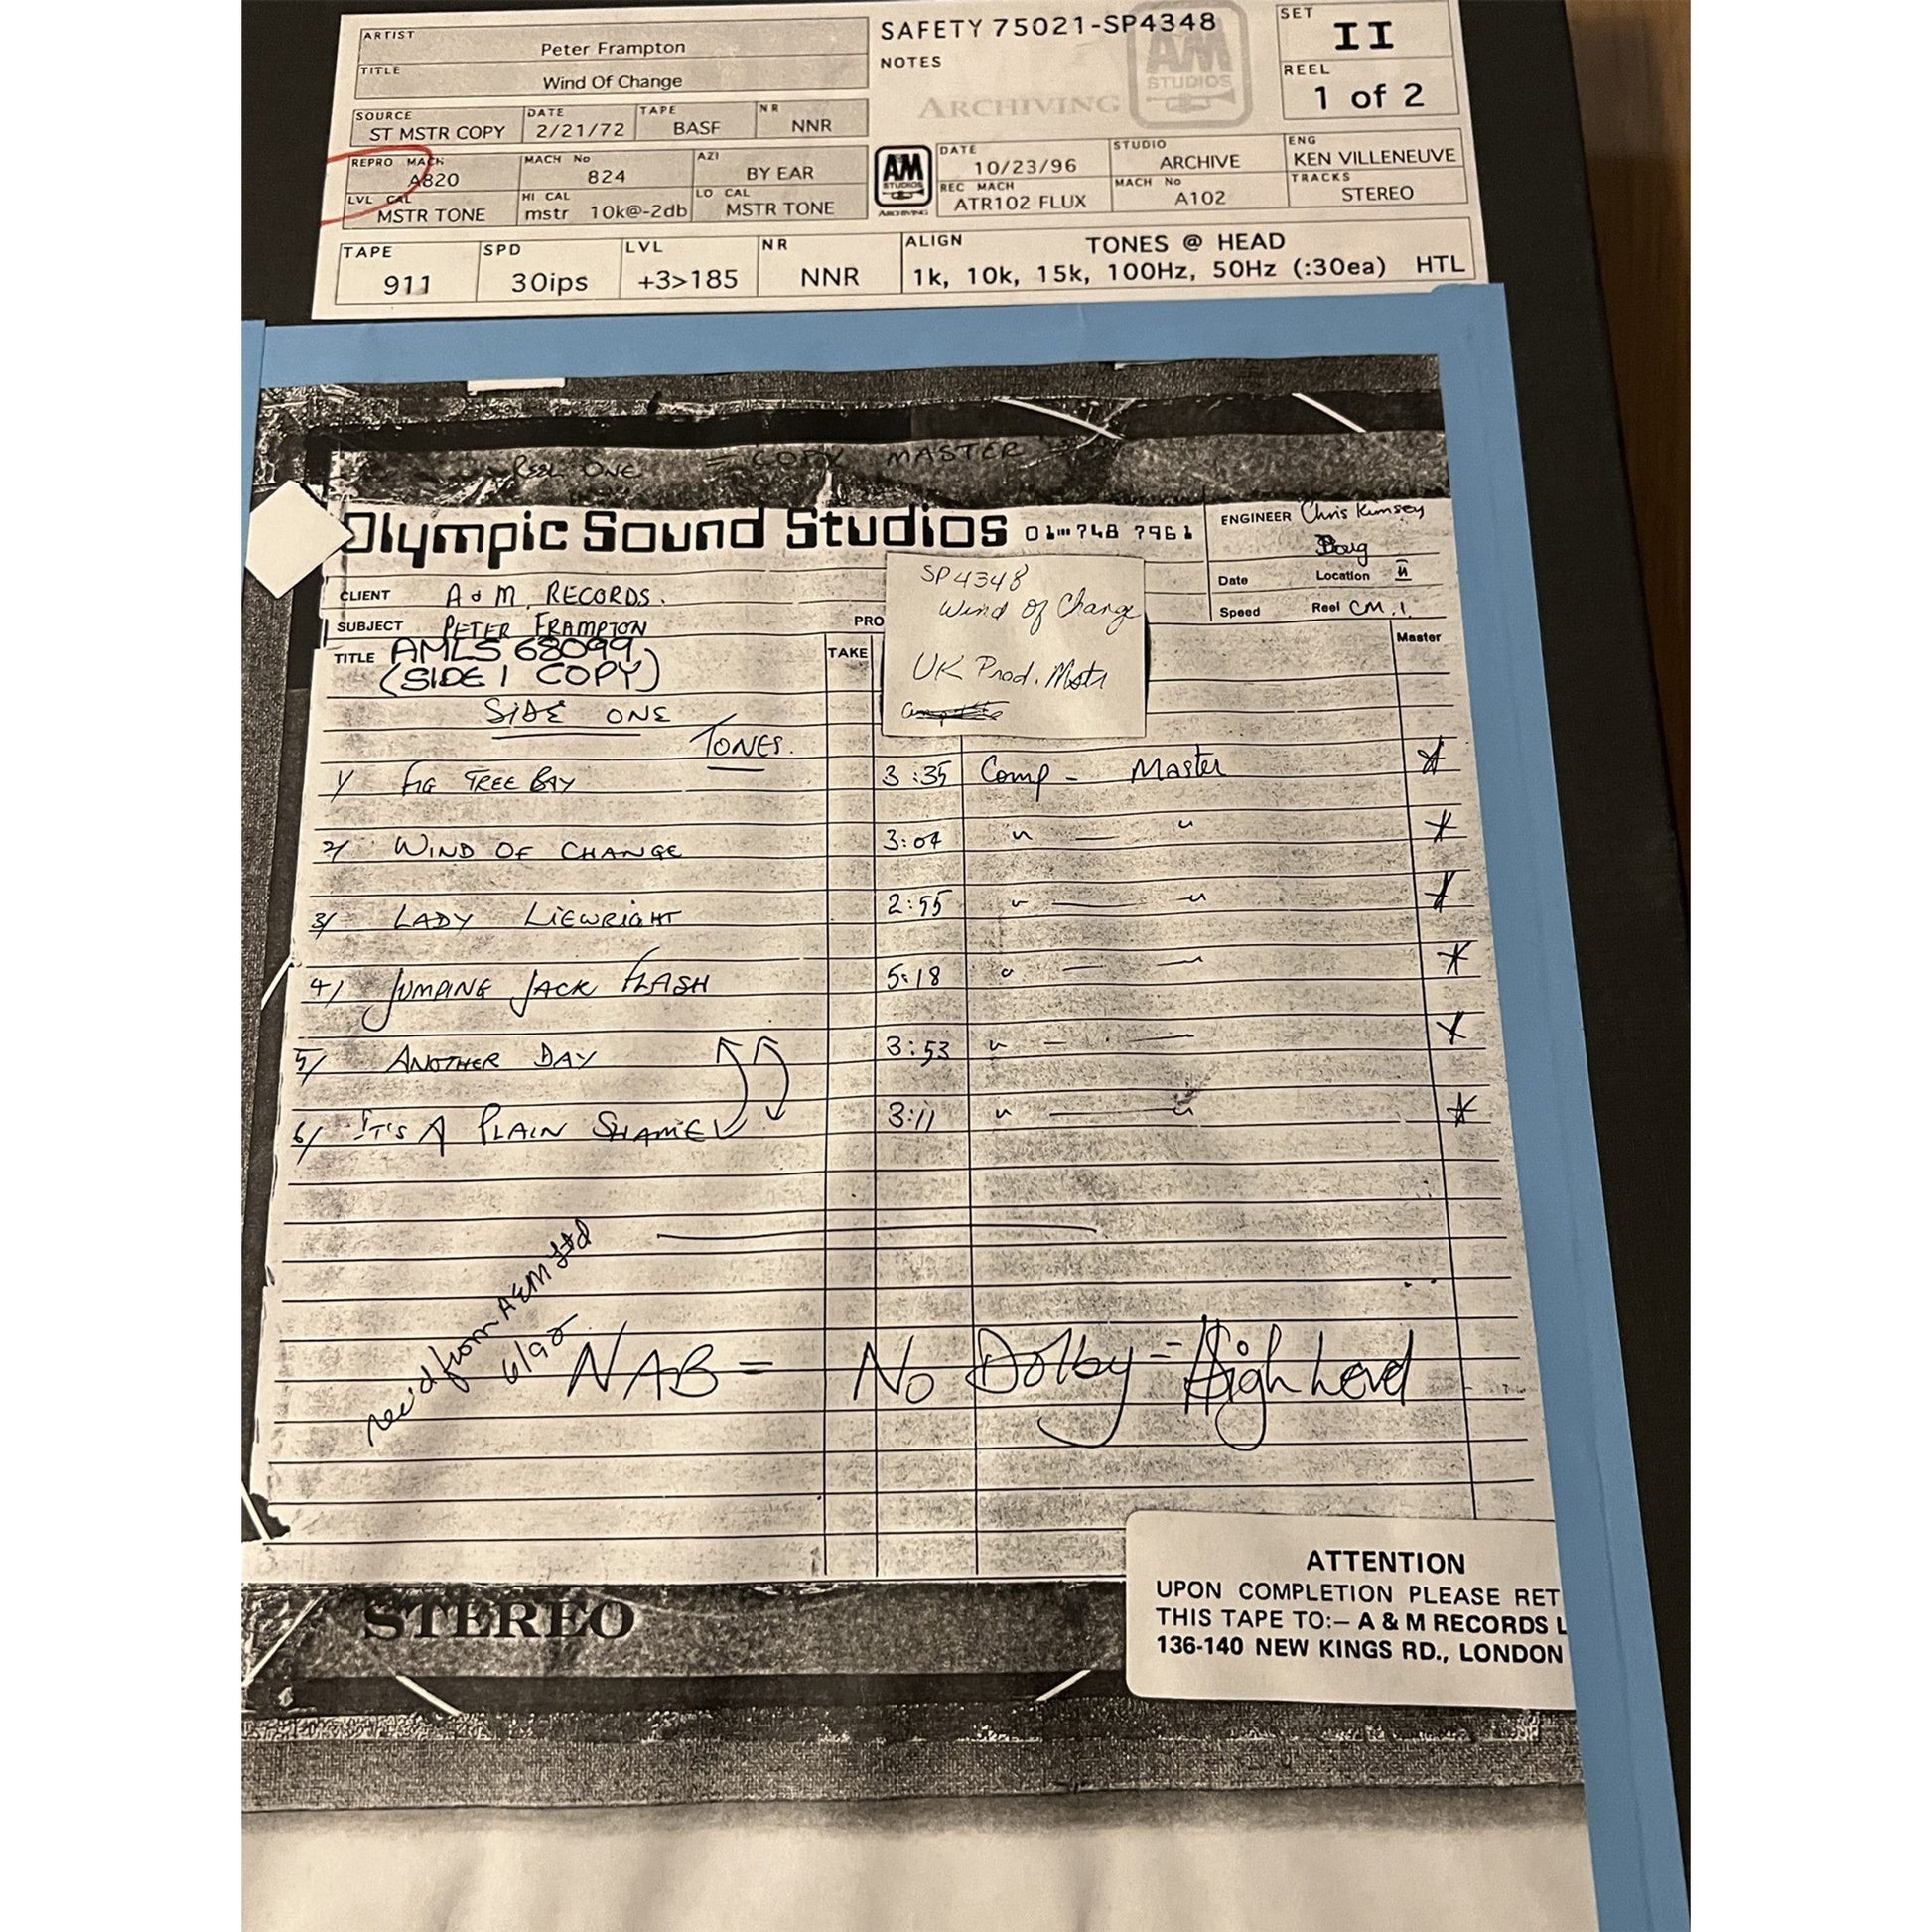 ARTIST
Peter Frampton
TITLE
Wind Of Change
SOURCE
ST MSTR COPY
DATE
2/21/72
TAPE
BASF
NR
NNR
REPRO MACH
A820
MACH No
824
AZI
BY EAR
LVL CAL
MSTR TONE
HI CAL
mstr 10k@-2db
LO CAL
MSTR TONE
SAFETY 75021-SP4348
NOTES
ARCHIVING
AM
STUDIOS
SET
II
REEL
1 of 2
AM
STUDIOS
ARCHIVING
DATE
10/23/96
STUDIO
ARCHIVE
ENG
KEN VILLENEUVE
REC MACH
ATR102 FLUX
MACH No
A102
TRACKS
STEREO
TAPE
911
SPD
30ips
LVL
+3>185
NR
NNR
ALIGN
TONES @ HEAD
1k, 10k, 15k, 100Hz, 50Hz (:30ea) HTL
REEL ONE = COPY MASTER =
Olympic Sound Studios 01 748 7961
ENGINEER Chris Kimsey
Doug
Date Location
Speed Reel CM.1
CLIENT A & M RECORDS.
SUBJECT PETER FRAMPTON
PRO
SP4348
Wind Of Change
UK Prod. Mstr
TITLE AMLS 68099
(SIDE 1 COPY)
TAKE
Master
SIDE ONE
TONES.
1/ FIG TREE BAY 3:35 Comp - Master *
2/ WIND OF CHANGE 3:04 " — " *
3/ LADY LIEWRIGHT 2:55 " — " *
4/ JUMPING JACK FLASH 5:18 " — — *
5/ ANOTHER DAY 3:53 " — — *
6/ IT'S A PLAIN SHAME 3:11 " — " *
rec'd from A&M Ltd
6/92
NAB = No Dolby = High Level
STEREO
ATTENTION
UPON COMPLETION PLEASE RET
THIS TAPE TO:– A & M RECORDS L
136-140 NEW KINGS RD., LONDON